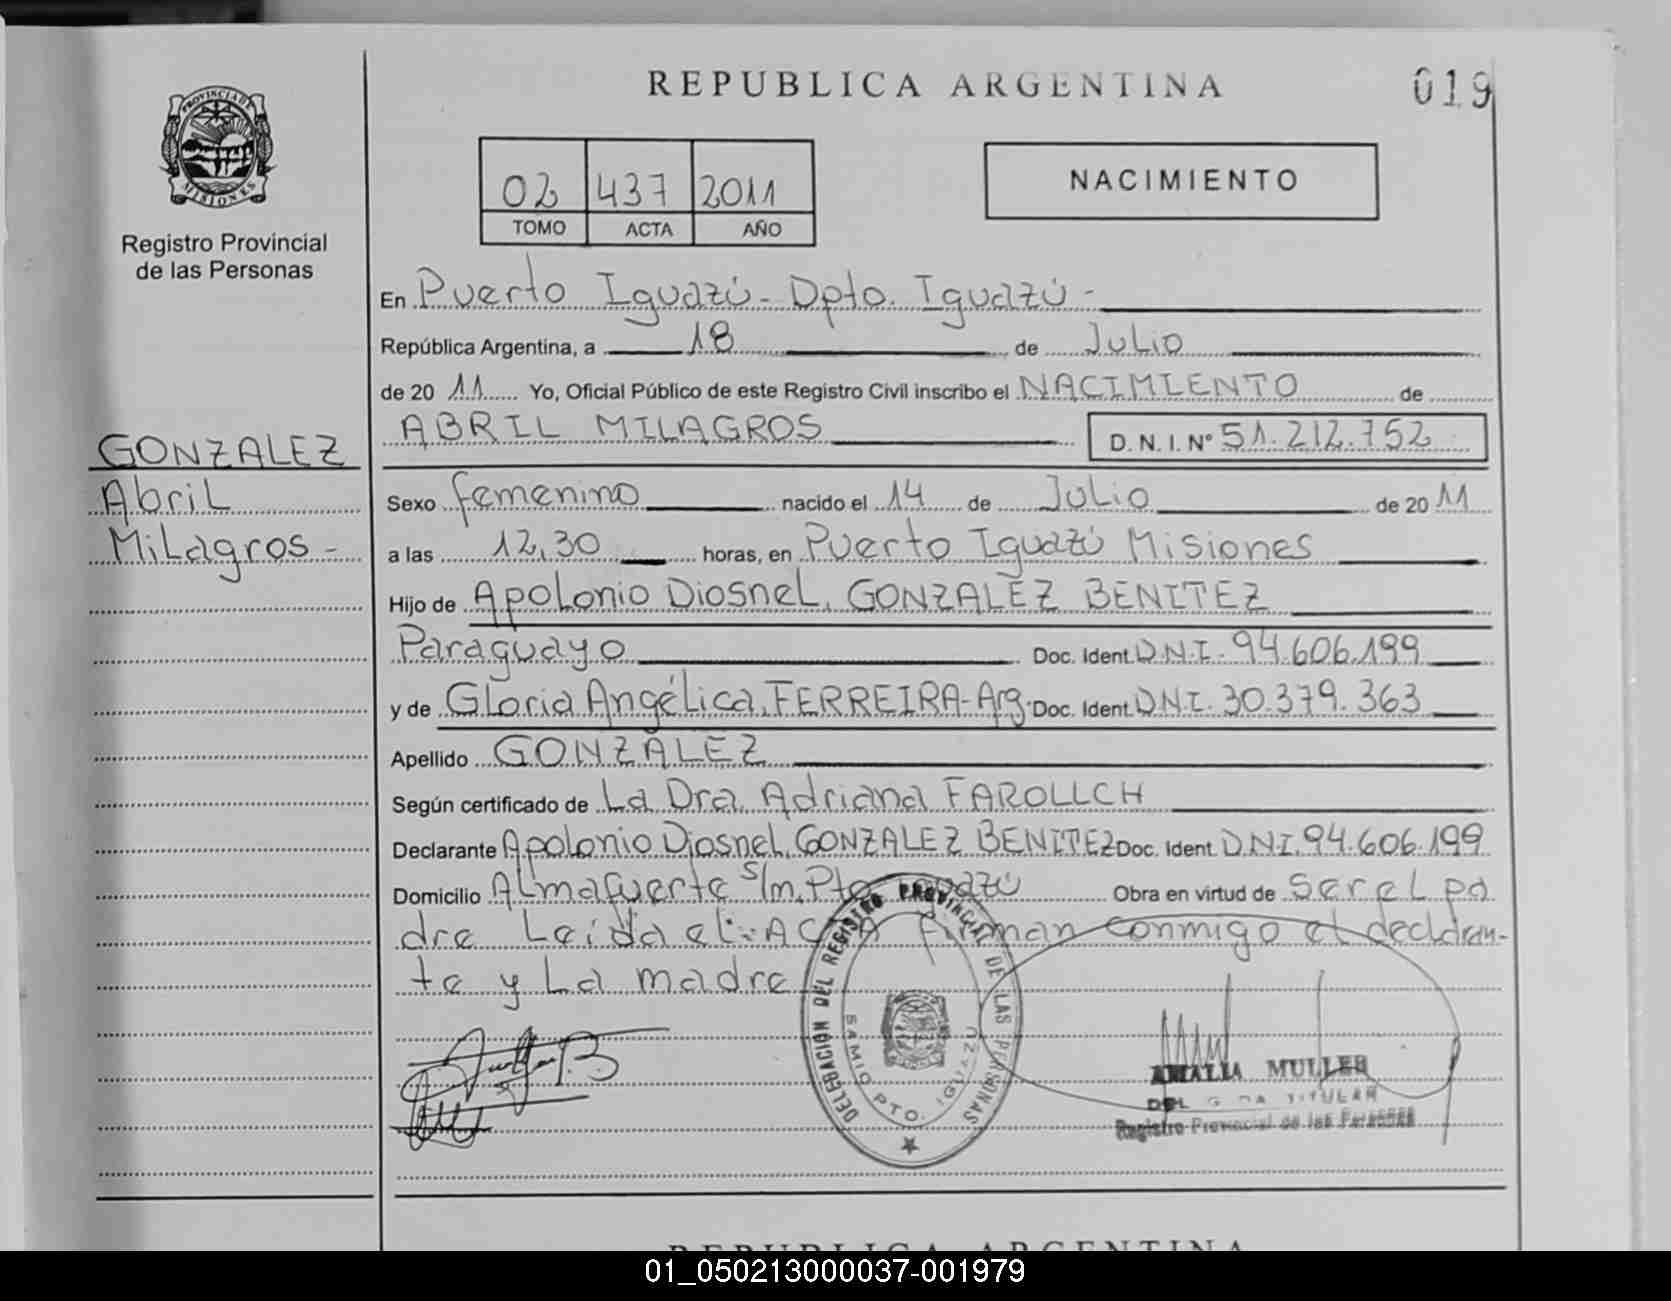 REPUBLICA ARGENTINA
019
PROVINCIA DE MISIONES
Registro Provincial
de las Personas
02 437 2011
TOMO ACTA AÑO
NACIMIENTO
En Puerto Iguazú - Dpto. Iguazú -
República Argentina, a 18 de Julio
de 2011 Yo, Oficial Público de este Registro Civil inscribo el NACIMIENTO de
ABRIL MILAGROS D.N.I. Nº 51.212.752
GONZALEZ
Abril
Milagros -
Sexo femenino nacido el 14 de Julio de 2011
a las 12,30 horas, en Puerto Iguazú Misiones
Hijo de Apolonio Diosnel, GONZALEZ BENITEZ
Paraguayo Doc. Ident. D.N.I. 94.606.199
y de Gloria Angélica, FERREIRA - Arg. Doc. Ident. D.N.I. 30.379.363
Apellido GONZALEZ
Según certificado de La Dra. Adriana FAROLLCH
Declarante Apolonio Diosnel, GONZALEZ BENITEZ Doc. Ident. D.N.I. 94.606.199
Domicilio Almafuerte s/n, Pto. Iguazú Obra en virtud de Ser el pa
dre Leída el ACTA firman conmigo el declaran-
te y La madre
DELEGACIÓN DEL REGISTRO PROVINCIAL DE LAS PERSONAS
PTO. IGUAZU
AMALIA MULLER
TITULAR
Registro Provincial de las Personas
REPUBLICA ARGENTINA
01_050213000037-001979